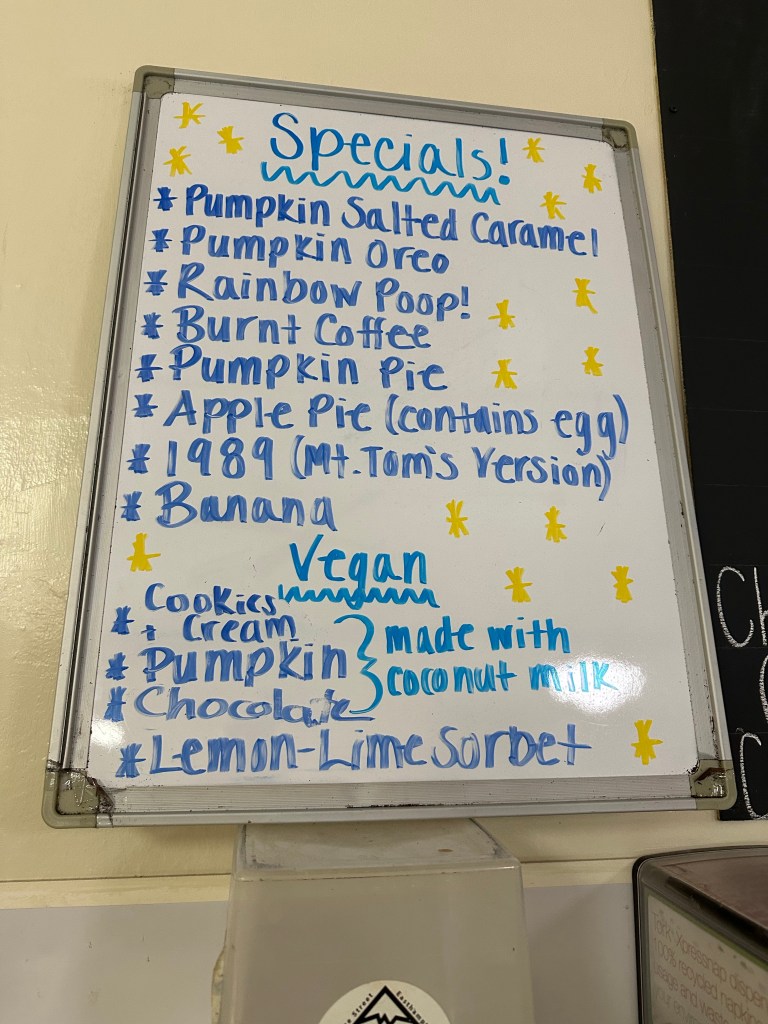 Specials!
* Pumpkin Salted Caramel
* Pumpkin Oreo
* Rainbow Poop!
* Burnt Coffee
* Pumpkin Pie
* Apple Pie (contains egg)
* 1989 (Mt. Tom's Version)
* Banana
Vegan
* Cookies
+ Cream
* Pumpkin
* Chocolate
made with
coconut milk
* Lemon-Lime Sorbet
Street
100% recycled